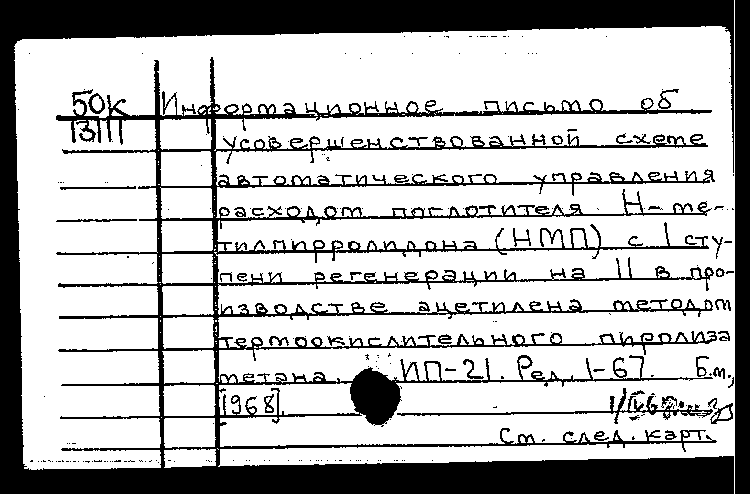 50к Информационное письмо об
1311 усовершенствованной схеме
автоматического управления
расходом поглотителя Н-ме-
тилпирролидона (НМП) с I сту-
пени регенерации на II в про-
изводстве ацетилена методом
термоокислительного пиролиза
метана. ИП-21. Ред. 1-67. Б.м.,
[1968].
См. след. карт.